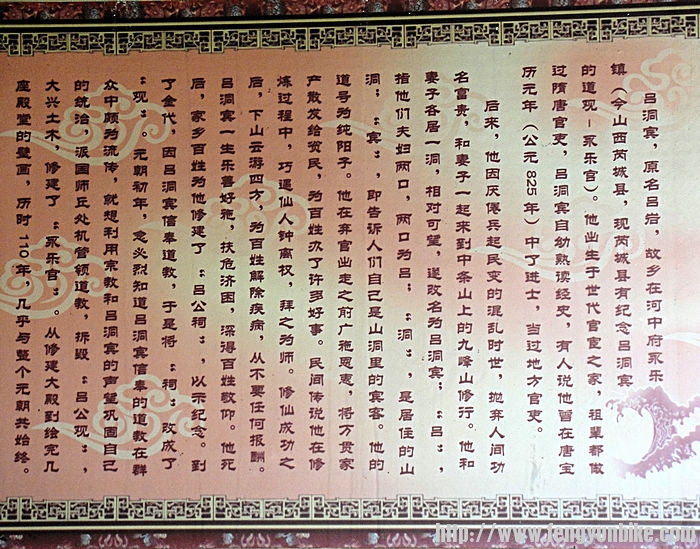 吕洞宾，原名吕岩，故乡在河中府永乐
镇（今山西芮城县，现芮城县有纪念吕洞宾
的道观－永乐宫）。他出生于世代官宦之家，祖辈都做
过隋唐官吏，吕洞宾自幼熟读经史，有人说他曾在唐宝
历元年（公元825年）中了进士，当过地方官吏。
后来，他因厌倦兵起民变的混乱时世，抛弃人间功
名富贵，和妻子一起来到中条山上的九峰山修行。他和
妻子各居一洞，相对可望，遂改名为吕洞宾；“吕”，
指他们夫妇两口，两口为吕；“洞”，是居住的山
洞；“宾”，即告诉人们自己是山洞里的宾客。他的
道号为纯阳子。他在弃官出走之前广施恩惠，将万贯家
产散发给贫民，为百姓办了许多好事。民间传说他在修
炼过程中，巧遇仙人钟离权，拜之为师。修仙成功之
后，下山云游四方，为百姓解除疾病，从不要任何报酬。
吕洞宾一生乐善好施，扶危济困，深得百姓敬仰。他死
后，家乡百姓为他修建了“吕公祠”，以示纪念。到
了金代，因吕洞宾信奉道教，于是将“祠”改成了
“观”。元朝初年，忽必烈知道吕洞宾信奉的道教在群
众中颇为流传，就想利用宗教和吕洞宾的声望巩固自己
的统治，派国师丘处机管领道教，拆毁“吕公观”，
大兴土木，修建了“永乐宫”。从修建大殿到绘完几
座殿堂的壁画，历时110年，几乎与整个元朝共始终。
http://www.fengyunbike.com